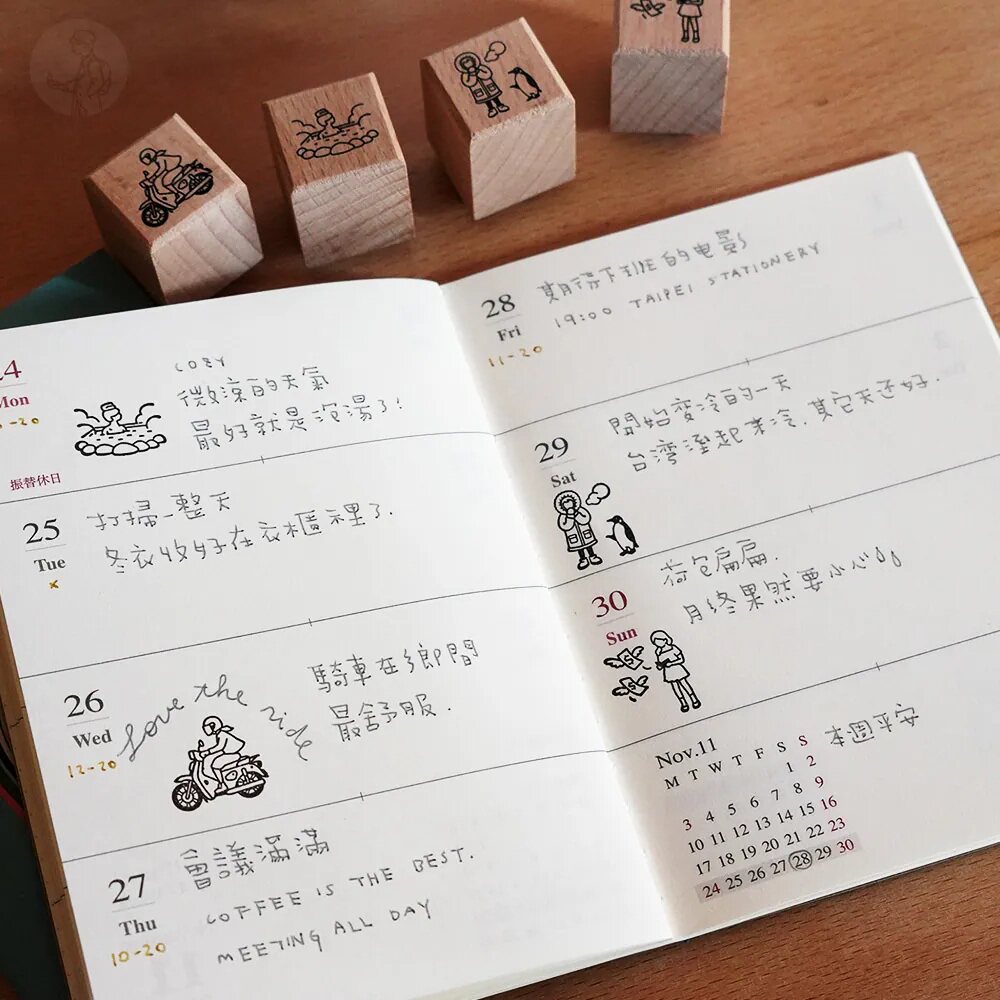 24
Mon
-20
COZY
微涼的天氣
最好就是泡湯了!
振替休日
25
Tue
x
打掃一整天
冬衣收好在衣櫃裡了.
26
Wed
12-20
Love the ride
騎車在鄉間
最舒服.
27
Thu
10-20
會議滿滿
COFFEE IS THE BEST.
MEETING ALL DAY
28
Fri
11-20
期待下班的电影
19:00 TAIPEI STATIONERY
29
Sat
開始變冷的一天
台灣溼起來冷.其它天还好.
30
Sun
荷包扁扁.
月終果然要小心
Nov.11
M T W T F S S
1 2
3 4 5 6 7 8 9
10 11 12 13 14 15 16
17 18 19 20 21 22 23
24 25 26 27 28 29 30
本週平安